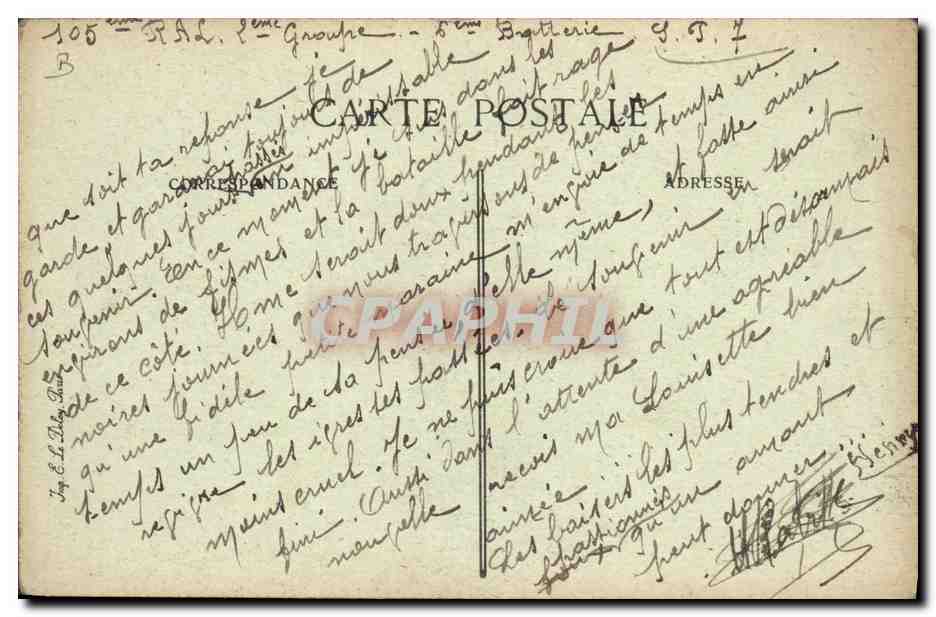 105ème RAL. 2ème Groupe - 6ème Batterie S. P. 7
B
CARTE POSTALE
CORRESPONDANCE
ADRESSE
que soit ta réponse je
garde et garderai toujours de
ces quelques jours passés un impérissable
souvenir. En ce moment je suis dans les
environs de Fismes et la bataille fait rage
de ce côté. Il me serait doux pendant les
noires journées que nous traversons de penser
qu'une fidèle petite marraine m'envoie de temps en
temps un peu de sa pensée, d'elle même, et fasse ainsi
revivre les ivresses passées. Le souvenir en serait
moins cruel. Je ne puis croire que tout est désormais
fini. Aussi dans l'attente d'une agréable
nouvelle
reçois ma Louisette bien
aimée
les baisers les plus tendres et
passionnés
qu'un amant
peut donner
Imp. E. Le Deley, Paris
CPAPHIL